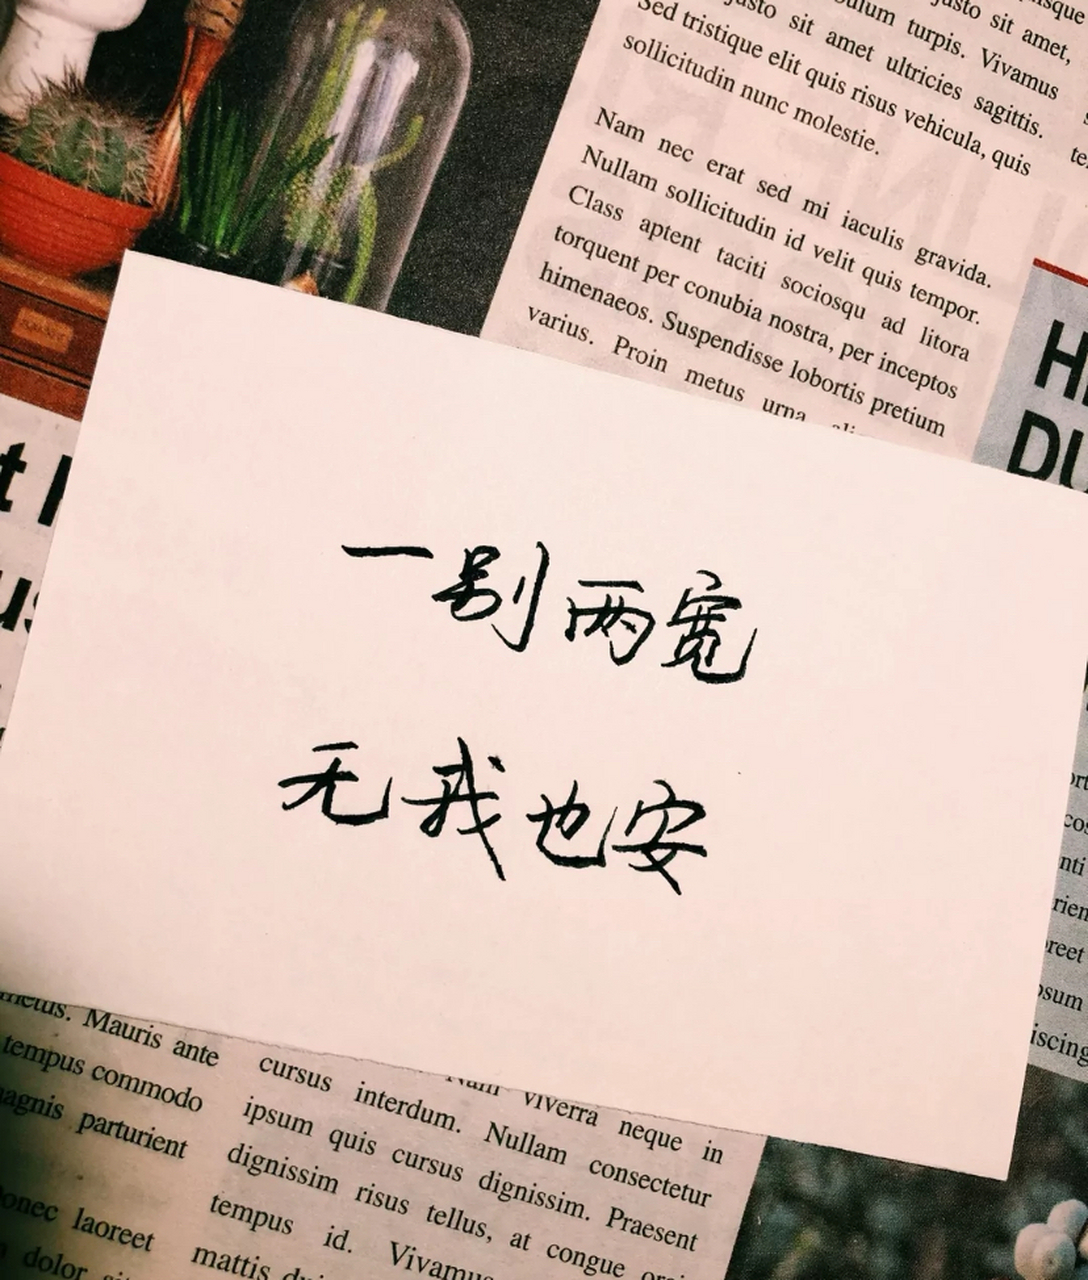 usto sit amet,
justo sit amet ultricies sagittis.
bulum turpis. Vivamus
Sed tristique elit quis risus vehicula, quis
sollicitudin nunc molestie.
Nam nec erat sed mi iaculis gravida.
Nullam sollicitudin id velit quis tempor.
Class aptent taciti sociosqu ad litora
torquent per conubia nostra, per inceptos
himenaeos. Suspendisse lobortis pretium
varius. Proin metus urna
DU
一别两宽
无我也安
metus. Mauris ante
tempus commodo
magnis parturient
onec laoreet
dolor
Nam viverra neque in
cursus interdum. Nullam consectetur
ipsum quis cursus dignissim. Praesent
dignissim risus tellus, at congue
tempus id. Vivamus
mattis